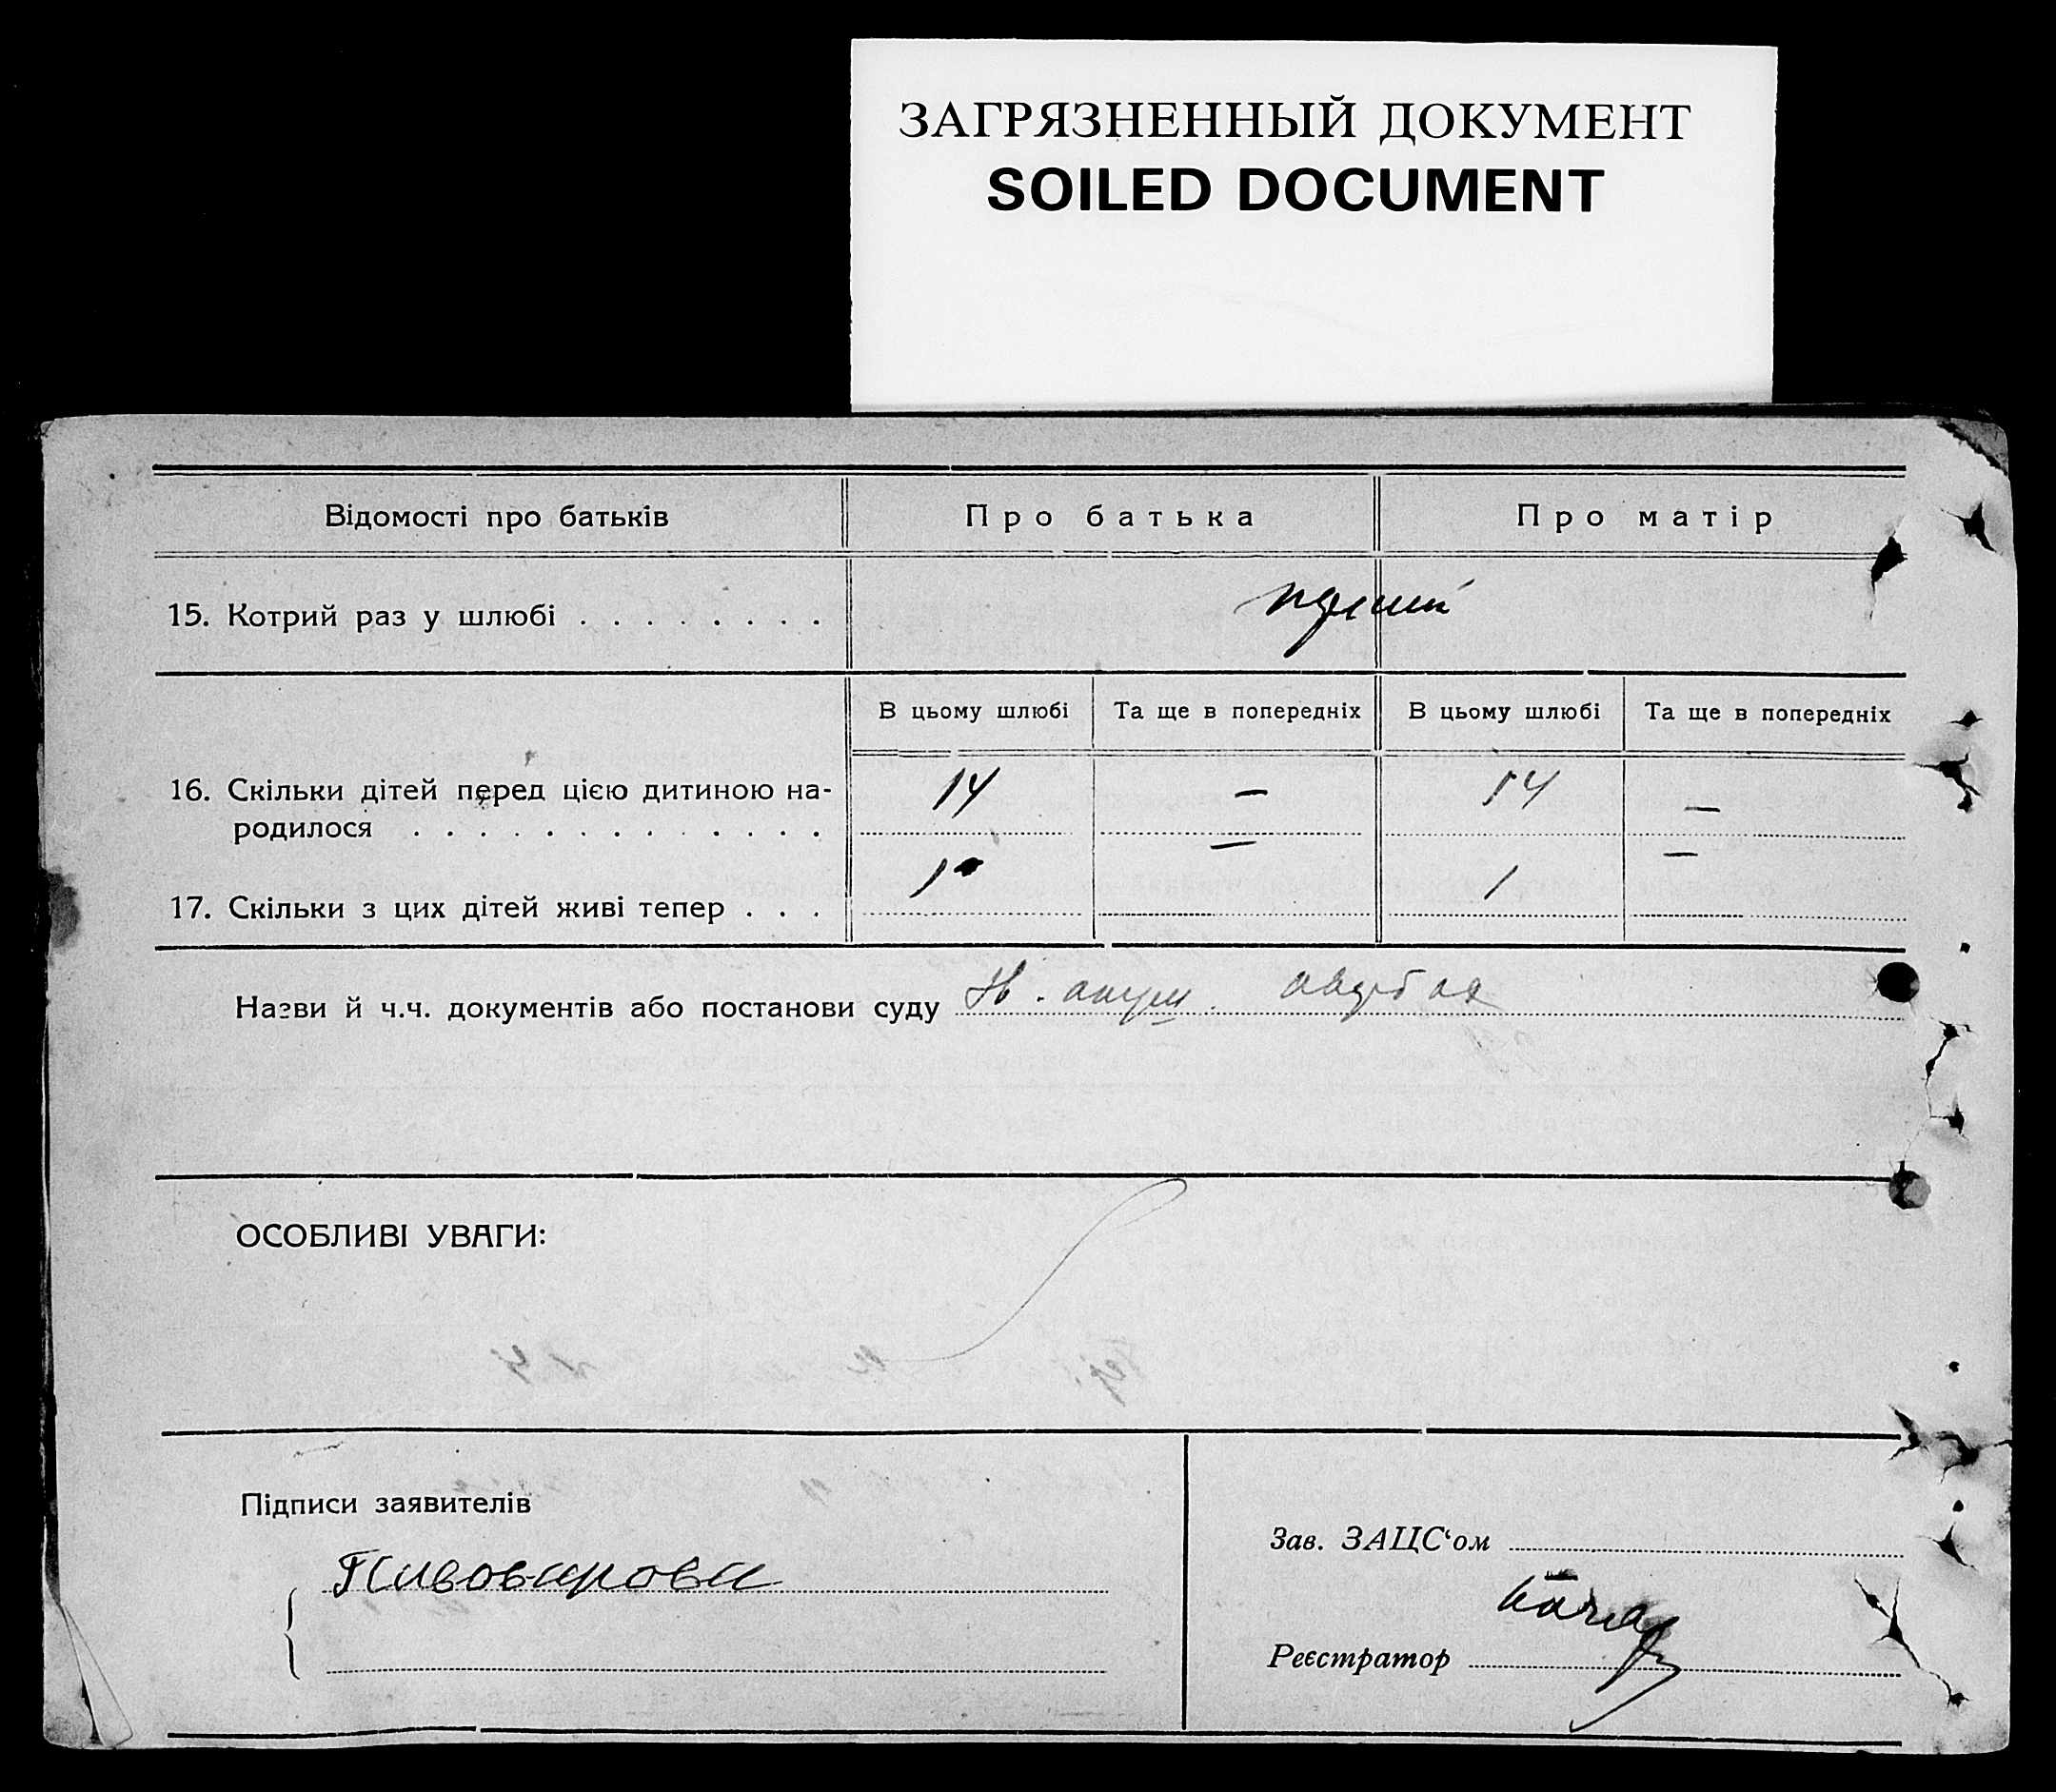 ЗАГРЯЗНЕННЫЙ ДОКУМЕНТ
SOILED DOCUMENT
Відомості про батьків
Про батька
Про матір
15. Котрий раз у шлюбі . . . . . . . .
В цьому шлюбі
Та ще в попередніх
В цьому шлюбі
Та ще в попередніх
16. Скільки дітей перед цією дитиною на-
родилося . . . . . . . . . . . . .
14 — 14 —
17. Скільки з цих дітей живі тепер . . .
1 — 1 —
Назви й ч.ч. документів або постанови суду
ОСОБЛИВІ УВАГИ:
Підписи заявителів
Пивоварова
Зав. ЗАЦС‘ом
Реєстратор